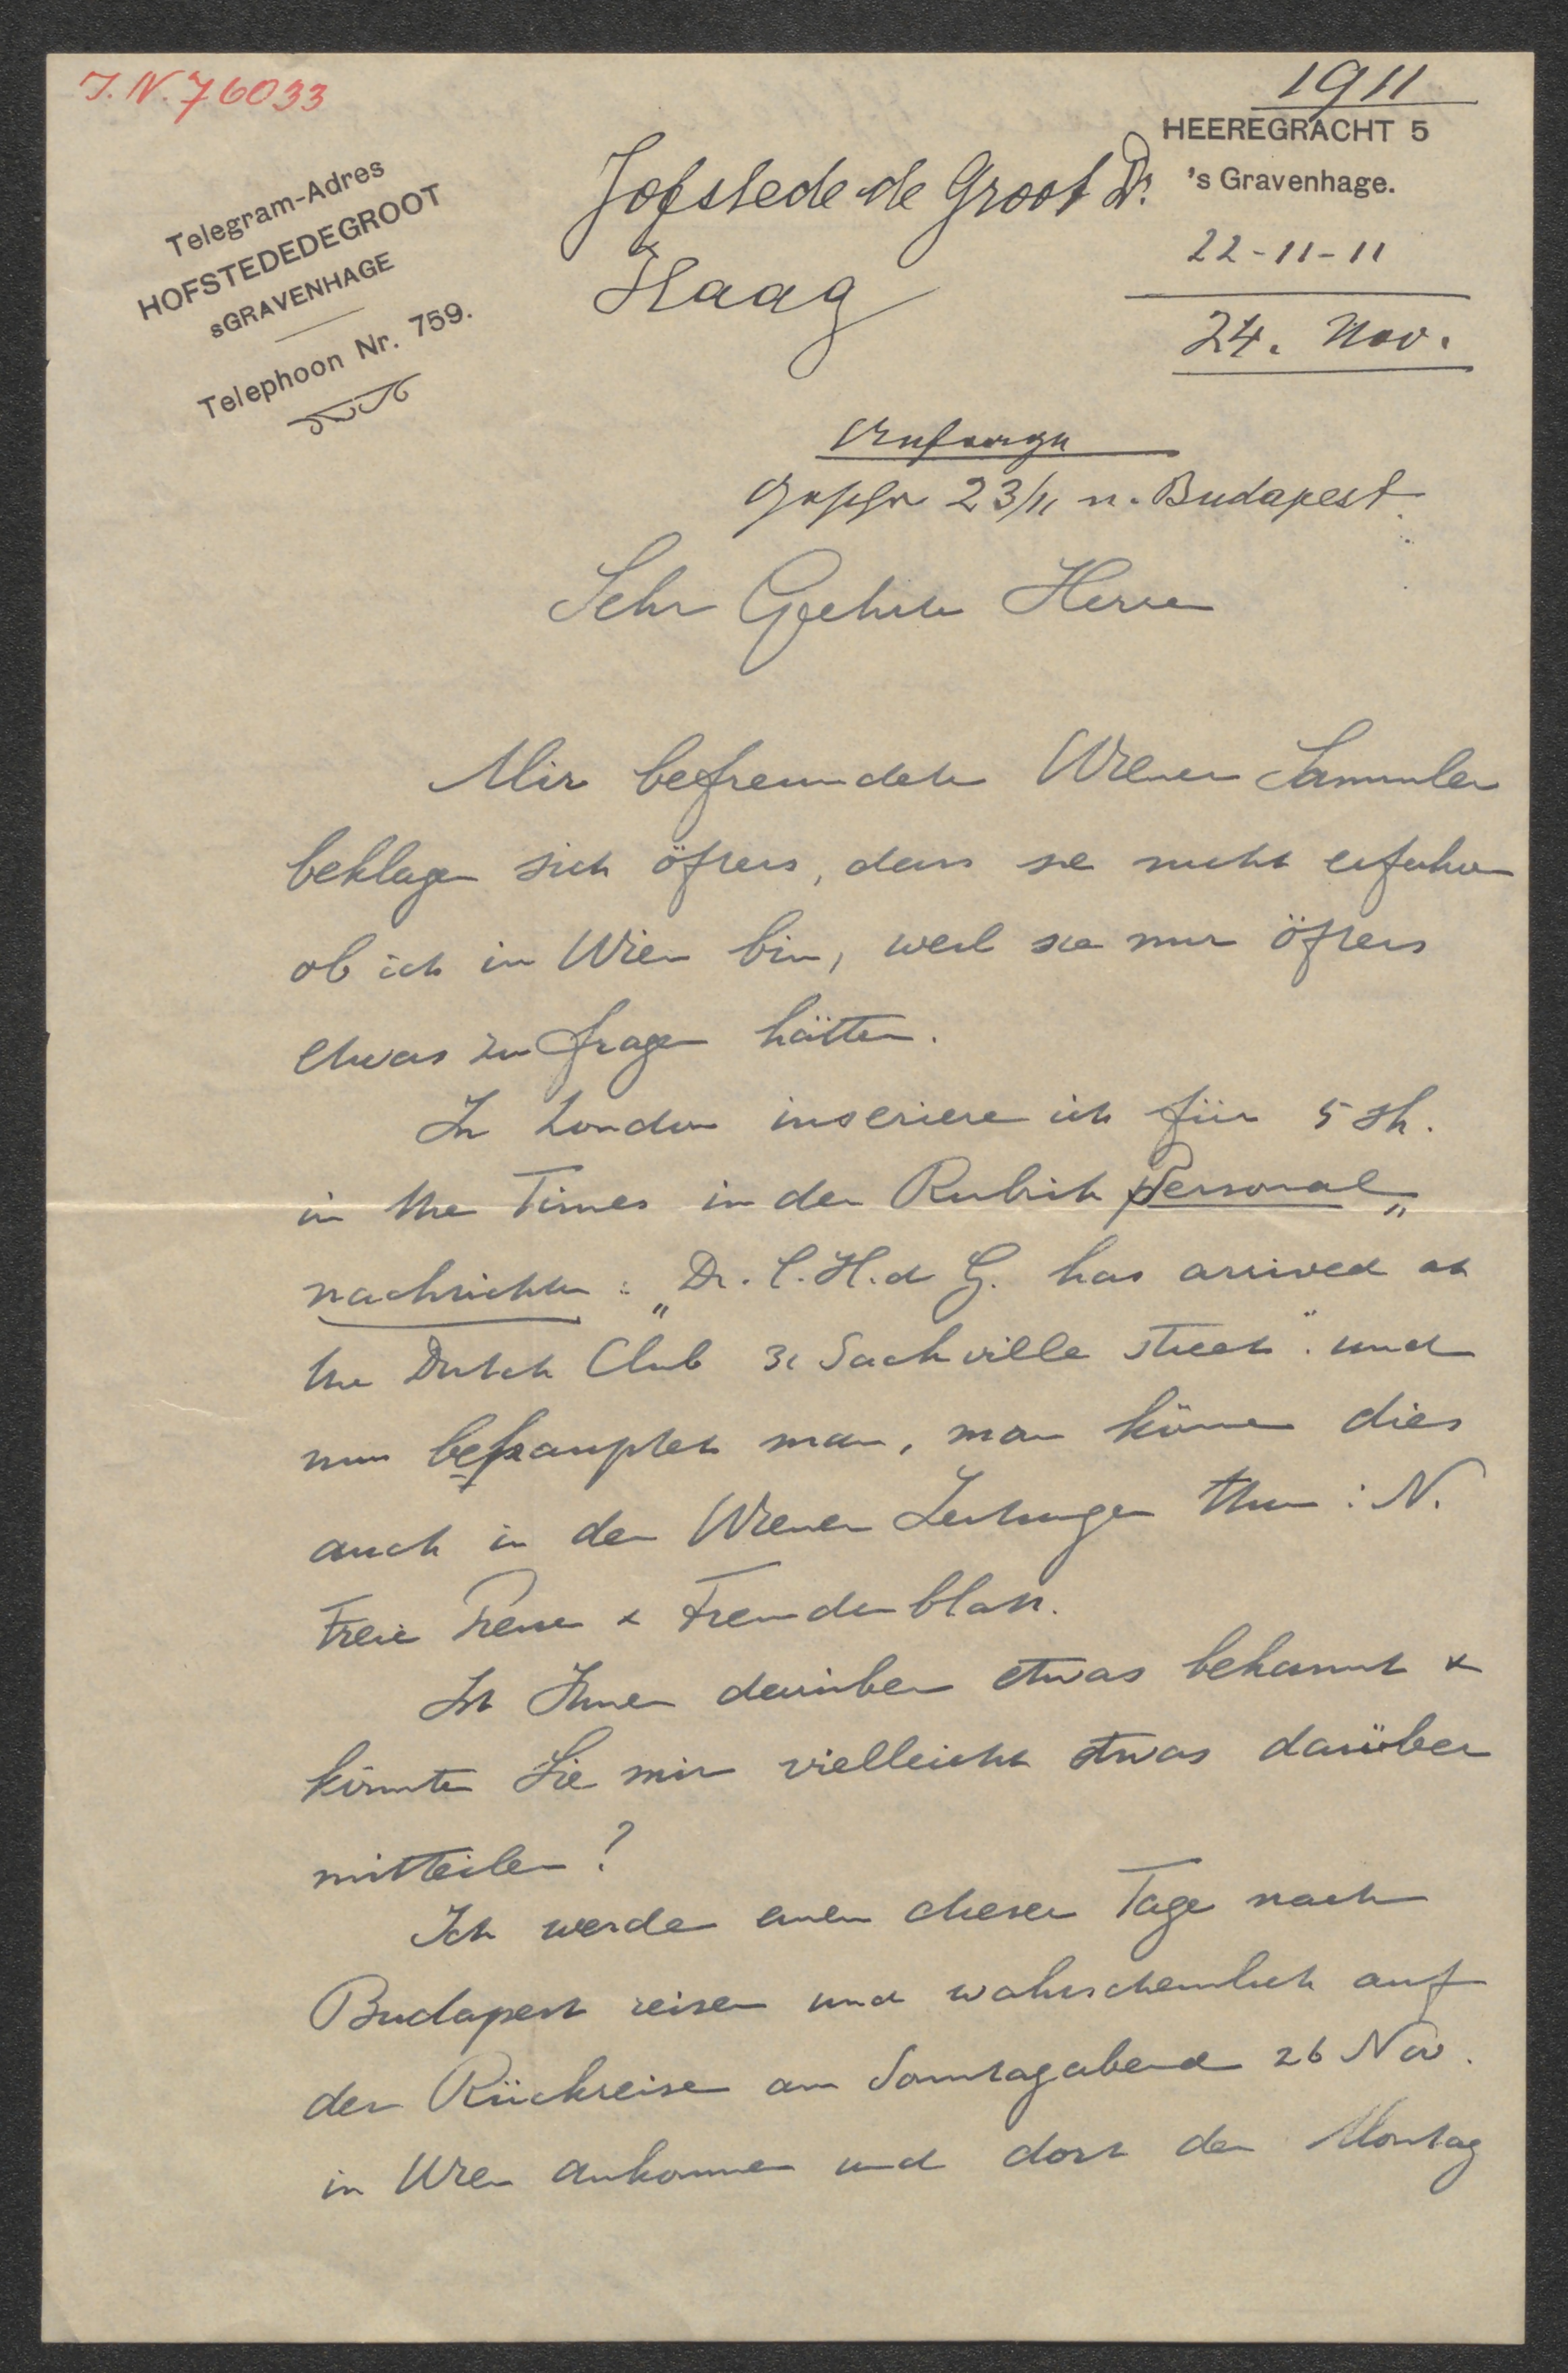 J. N. 76033
1911
HEEREGRACHT 5
's Gravenhage.
22-11-11
24. Nov.
Telegram-Adres
HOFSTEDEDEGROOT
sGRAVENHAGE
Telephoon Nr. 759.
Hofstede de Groot Dr.
Haag
Anfrage
23/11 n. Budapest.
Sehr Geehrte Herren
Mir befreundete Wiener Sammler
beklagen sich öfters, dass sie nicht erfahren
ob ich in Wien bin, weil sie mir öfters
etwas zu fragen hätten.
In London inseriere ich für 5 sh.
in the Times in der Rubrik Personal„
nachrichten: „Dr. C. H. d G. has arrived at
the Dutch Club 31 Sackville street". und
nun behauptet man, man könne dies
auch in den Wiener Zeitungen thun: N.
Freie Presse & Fremdenblatt.
Ist Ihnen darüber etwas bekannt &
könnten Sie mir vielleicht etwas darüber
mitteilen?
Ich werde einen dieser Tage nach
Budapest reisen und wahrscheinlich auf
der Rückreise am Sonntagabend 26 Nov.
in Wien ankommen und dort den Montag